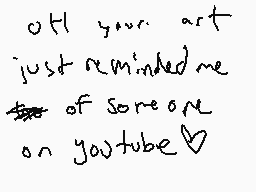 oH your art
just reminded me
of someone
on youtube♡